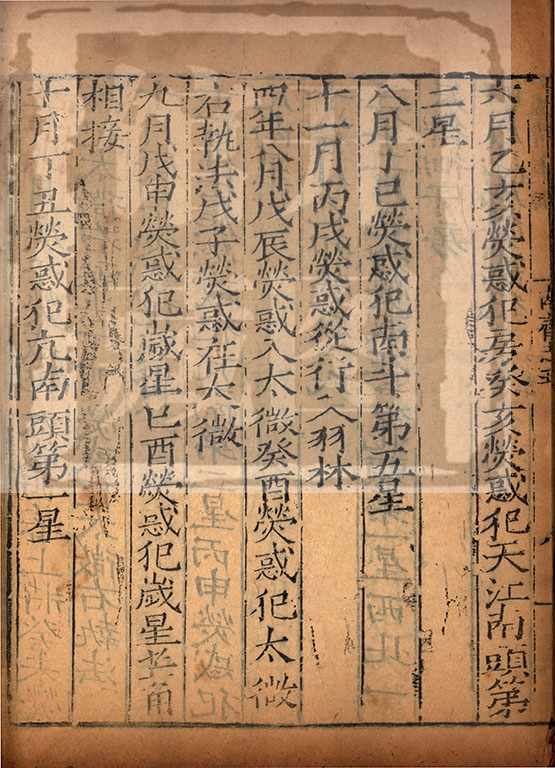 六月乙亥熒惑犯房癸亥熒惑犯天江南頭第
二星
八月丁巳熒惑犯南斗第五星
十一月丙戌熒惑從行入羽林
四年八月戊辰熒惑入太微癸酉熒惑犯太微
右執法戊子熒惑在太微
九月戊申熒惑犯歲星己酉熒惑犯歲星芒角
相接
十月丁丑熒惑犯亢南頭第一星